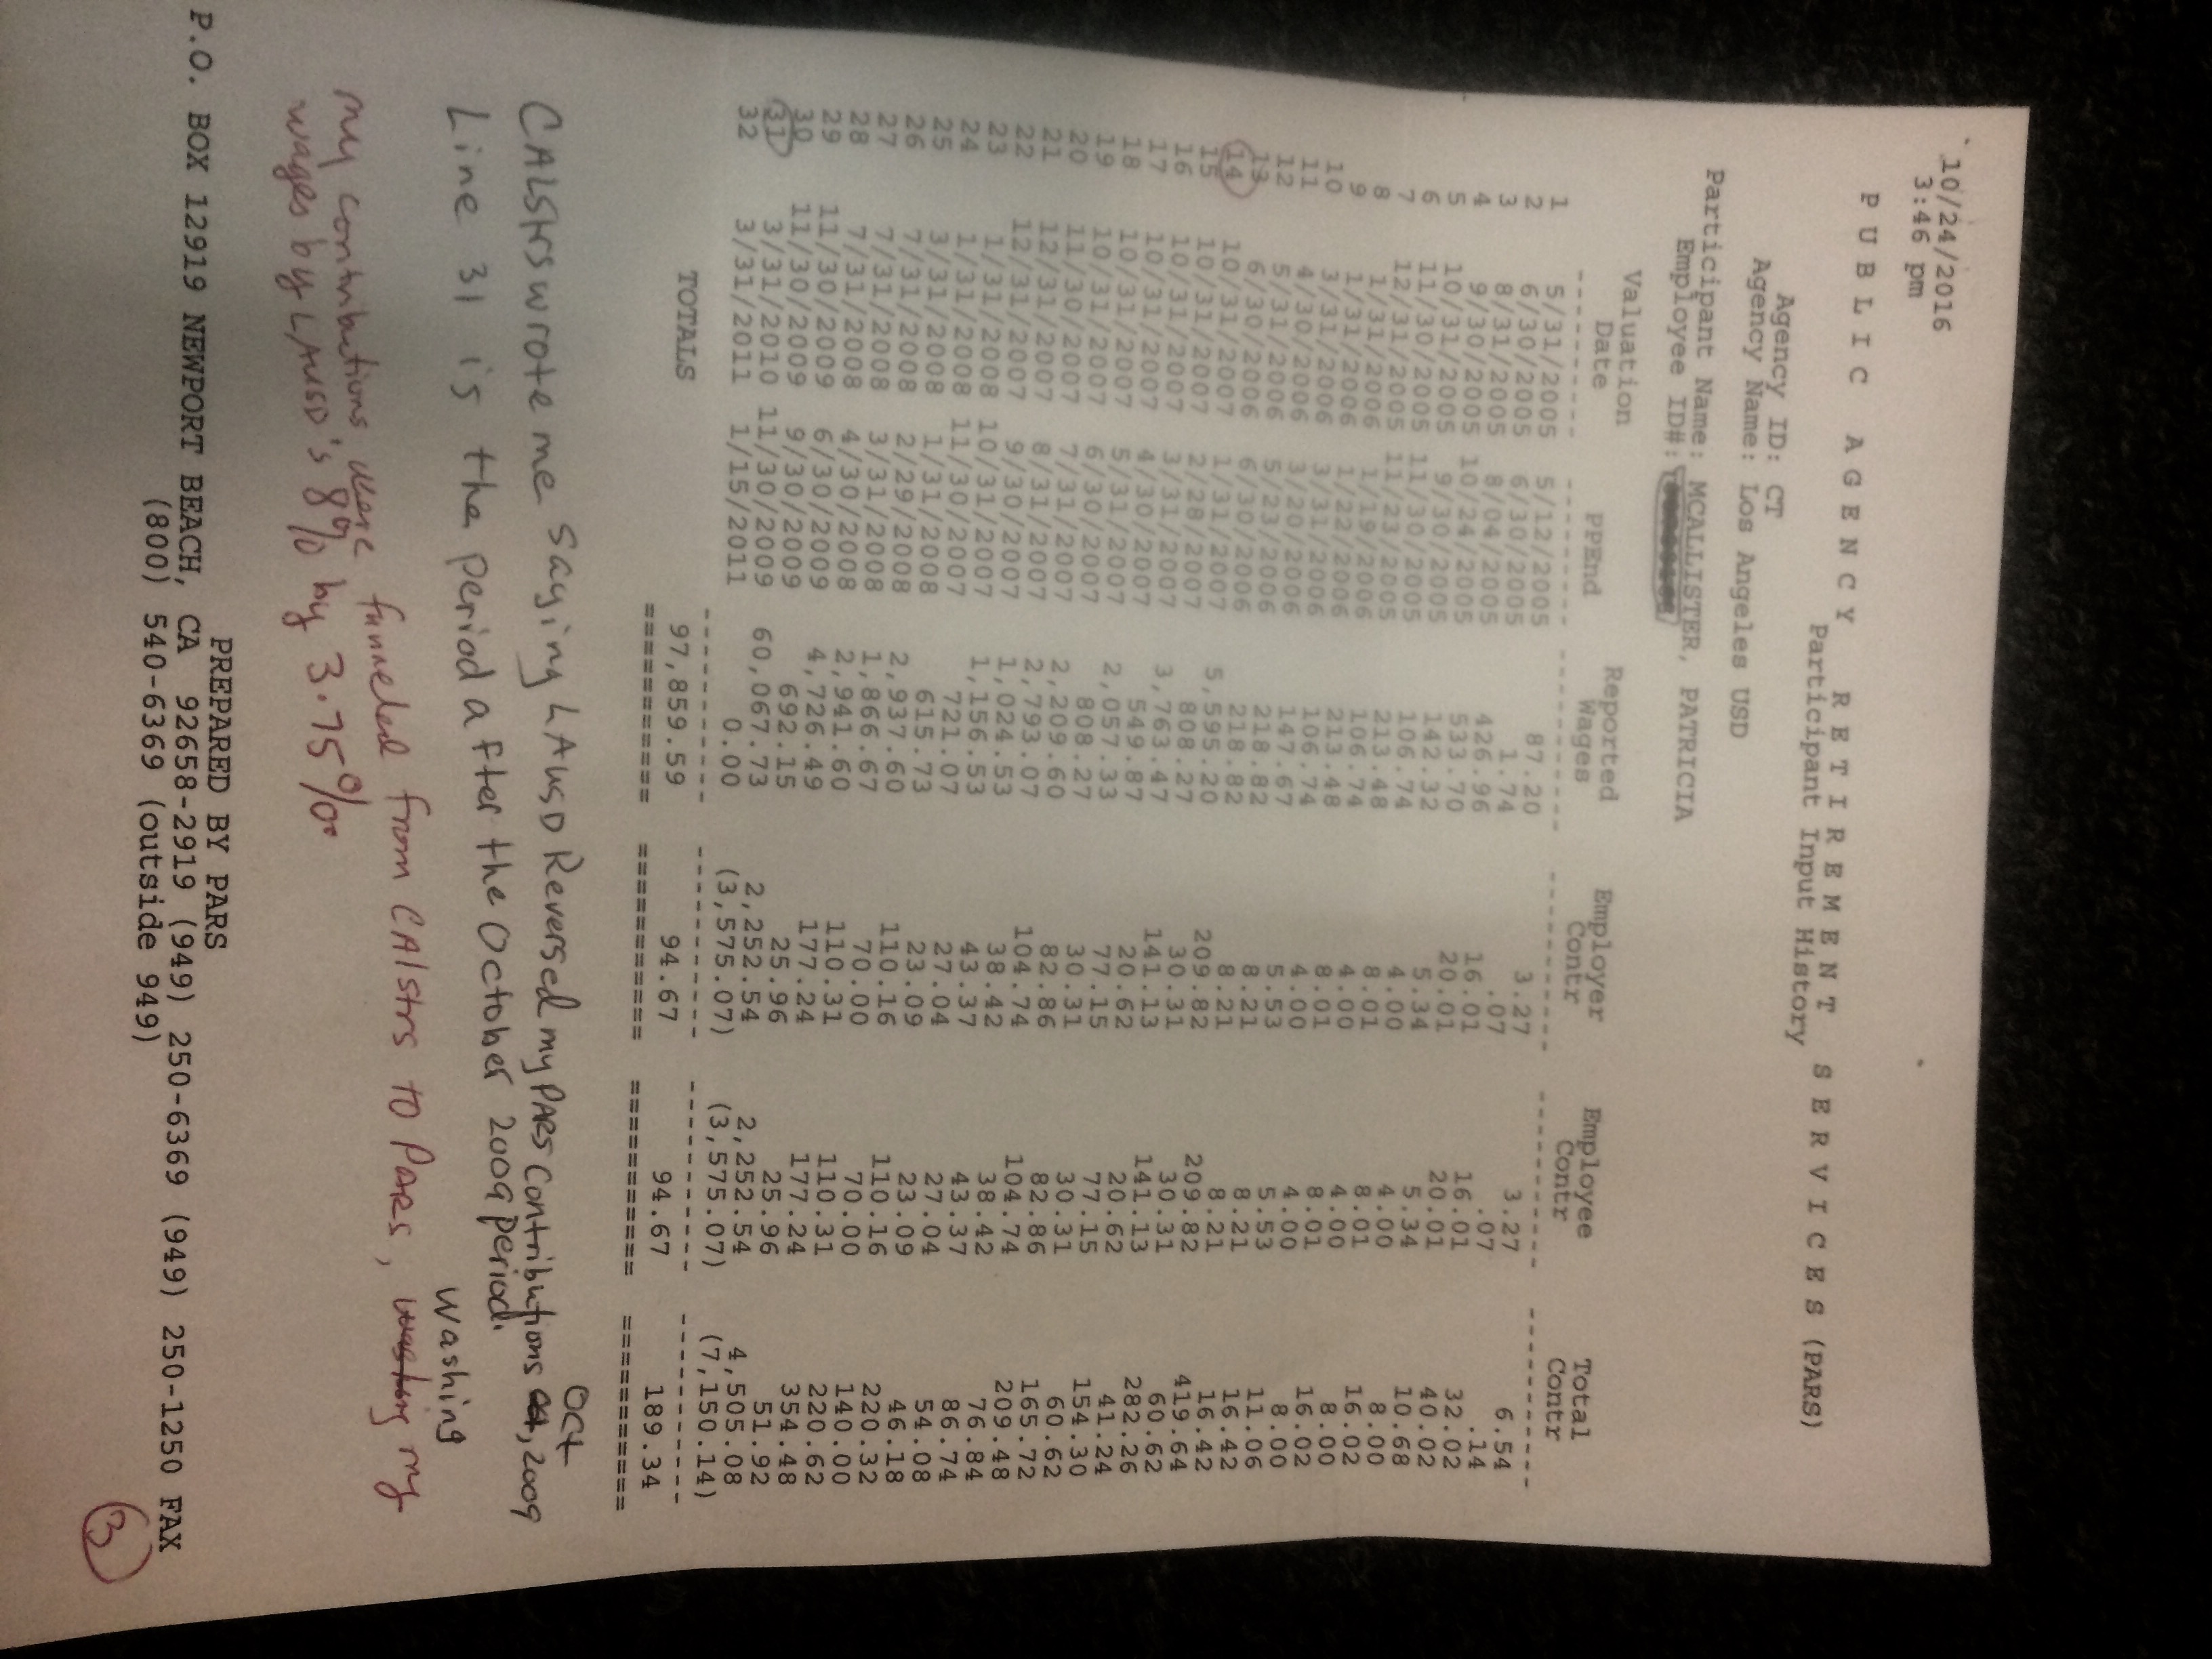 10/24/2016
3:46 pm
PUBLIC AGENCY RETIREMENT SERVICES (PARS)
Participant Input History
Agency ID: CT
Agency Name: Los Angeles USD
Participant Name: MCALLISTER, PATRICIA
Employee ID#:
Valuation Reported Employer Employee Total
Date PPEnd Wages Contr Contr Contr
1 5/31/2005 5/12/2005 87.20 3.27 3.27 6.54
2 6/30/2005 6/30/2005 1.74 .07 .07 .14
3 8/31/2005 8/04/2005 426.96 16.01 16.01 32.02
4 9/30/2005 10/24/2005 533.70 20.01 20.01 40.02
5 10/31/2005 9/30/2005 142.32 5.34 5.34 10.68
6 11/30/2005 11/30/2005 106.74 4.00 4.00 8.00
7 12/31/2005 11/23/2005 213.48 8.01 8.01 16.02
8 1/31/2006 1/19/2006 106.74 4.00 4.00 8.00
9 1/31/2006 1/22/2006 213.48 8.01 8.01 16.02
10 3/31/2006 3/31/2006 106.74 4.00 4.00 8.00
11 4/30/2006 3/20/2006 147.67 5.53 5.53 11.06
12 5/31/2006 5/23/2006 218.82 8.21 8.21 16.42
13 6/30/2006 6/30/2006 218.82 8.21 8.21 16.42
14 10/31/2007 1/31/2007 5,595.20 209.82 209.82 419.64
15 10/31/2007 2/28/2007 808.27 30.31 30.31 60.62
16 10/31/2007 3/31/2007 3,763.47 141.13 141.13 282.26
17 10/31/2007 4/30/2007 549.87 20.62 20.62 41.24
18 10/31/2007 5/31/2007 2,057.33 77.15 77.15 154.30
19 10/31/2007 6/30/2007 808.27 30.31 30.31 60.62
20 11/30/2007 7/31/2007 2,209.60 82.86 82.86 165.72
21 12/31/2007 8/31/2007 2,793.07 104.74 104.74 209.48
22 12/31/2007 9/30/2007 1,024.53 38.42 38.42 76.84
23 1/31/2008 10/31/2007 1,156.53 43.37 43.37 86.74
24 1/31/2008 11/30/2007 721.07 27.04 27.04 54.08
25 3/31/2008 1/31/2008 615.73 23.09 23.09 46.18
26 7/31/2008 2/29/2008 2,937.60 110.16 110.16 220.32
27 7/31/2008 3/31/2008 1,866.67 70.00 70.00 140.00
28 7/31/2008 4/30/2008 2,941.60 110.31 110.31 220.62
29 11/30/2009 6/30/2009 4,726.49 177.24 177.24 354.48
30 11/30/2009 9/30/2009 692.15 25.96 25.96 51.92
31 3/31/2010 11/30/2009 60,067.73 2,252.54 2,252.54 4,505.08
32 3/31/2011 1/15/2011 0.00 (3,575.07) (3,575.07) (7,150.14)
TOTALS 97,859.59 94.67 94.67 189.34
CAlstrs wrote me saying LAUSD Reversed my PARS Contributions Oct, 2009
Line 31 is the period after the October 2009 period.
my contributions were funneled from CAlstrs to Pars, washing my
wages by LAUSD's 8% by 3.75%
PREPARED BY PARS
P.O. BOX 12919 NEWPORT BEACH, CA 92658-2919 (949) 250-6369 (949) 250-1250 FAX
(800) 540-6369 (outside 949)
3